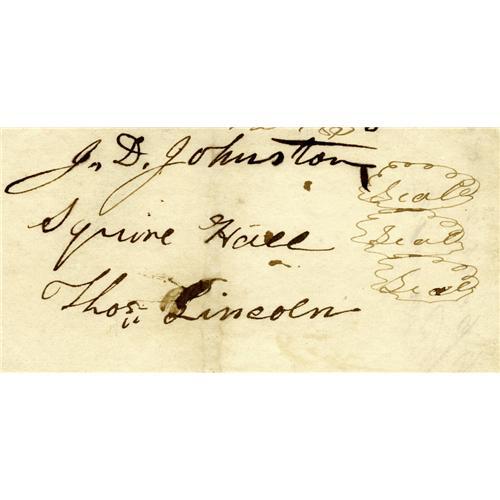 J. D. Johnston Seal
Squire Hall Seal
Thos. Lincoln Seal